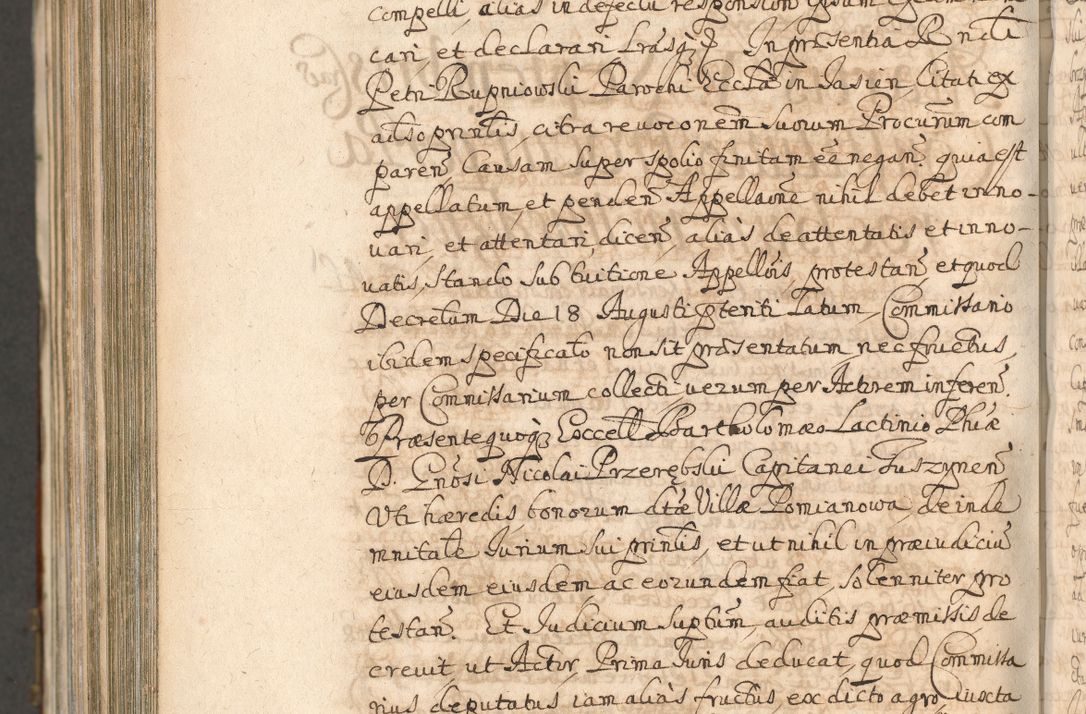 compelli, alias in defectu respondion ipsum excommuni
cari, et declarari Lrãsq̃ꝫ In præsentia R ndi
Petri Rupniowski Parochi Ecclæ in Jasien, Citati ex
adso prntis, citra revoconem suorum Procurum com
paren Causam super spolio finitam ẽe negan quia est
appellatum, et penden Appellaone nihil debet inno-
uari, et attentari, dicen, alias de attentatis et inno-
uatis, stando sub tuitione Appellõis, protestan, et quod
Decretum Die 18 Augusti ptenti Latum, Commissario
ibidem specificato non sit præsentatum, nec fructus,
per Commissarium collecti, uerum per Actorem inferen.
Præsente quoqꝫ Excell Bartholomæo Lactinio Phiæ
D. Gnosi Nicolai Przerębski Capitanei Tuszynen
Uti hæredis, bonorum dtæ Villæ Pomianowa, de inde
mnitate Jurium sui prntis, et ut nihil in præiudiciũ
eiusdem eiusdem ac eorundem fiat, solenniter pro
testan. Et Judicium suptum, auditis præmissis de
creuit, ut Actor Prima Juris deducat, quod Commissa
rius deputatus iam alias fructus, ex dicto agro iuxta